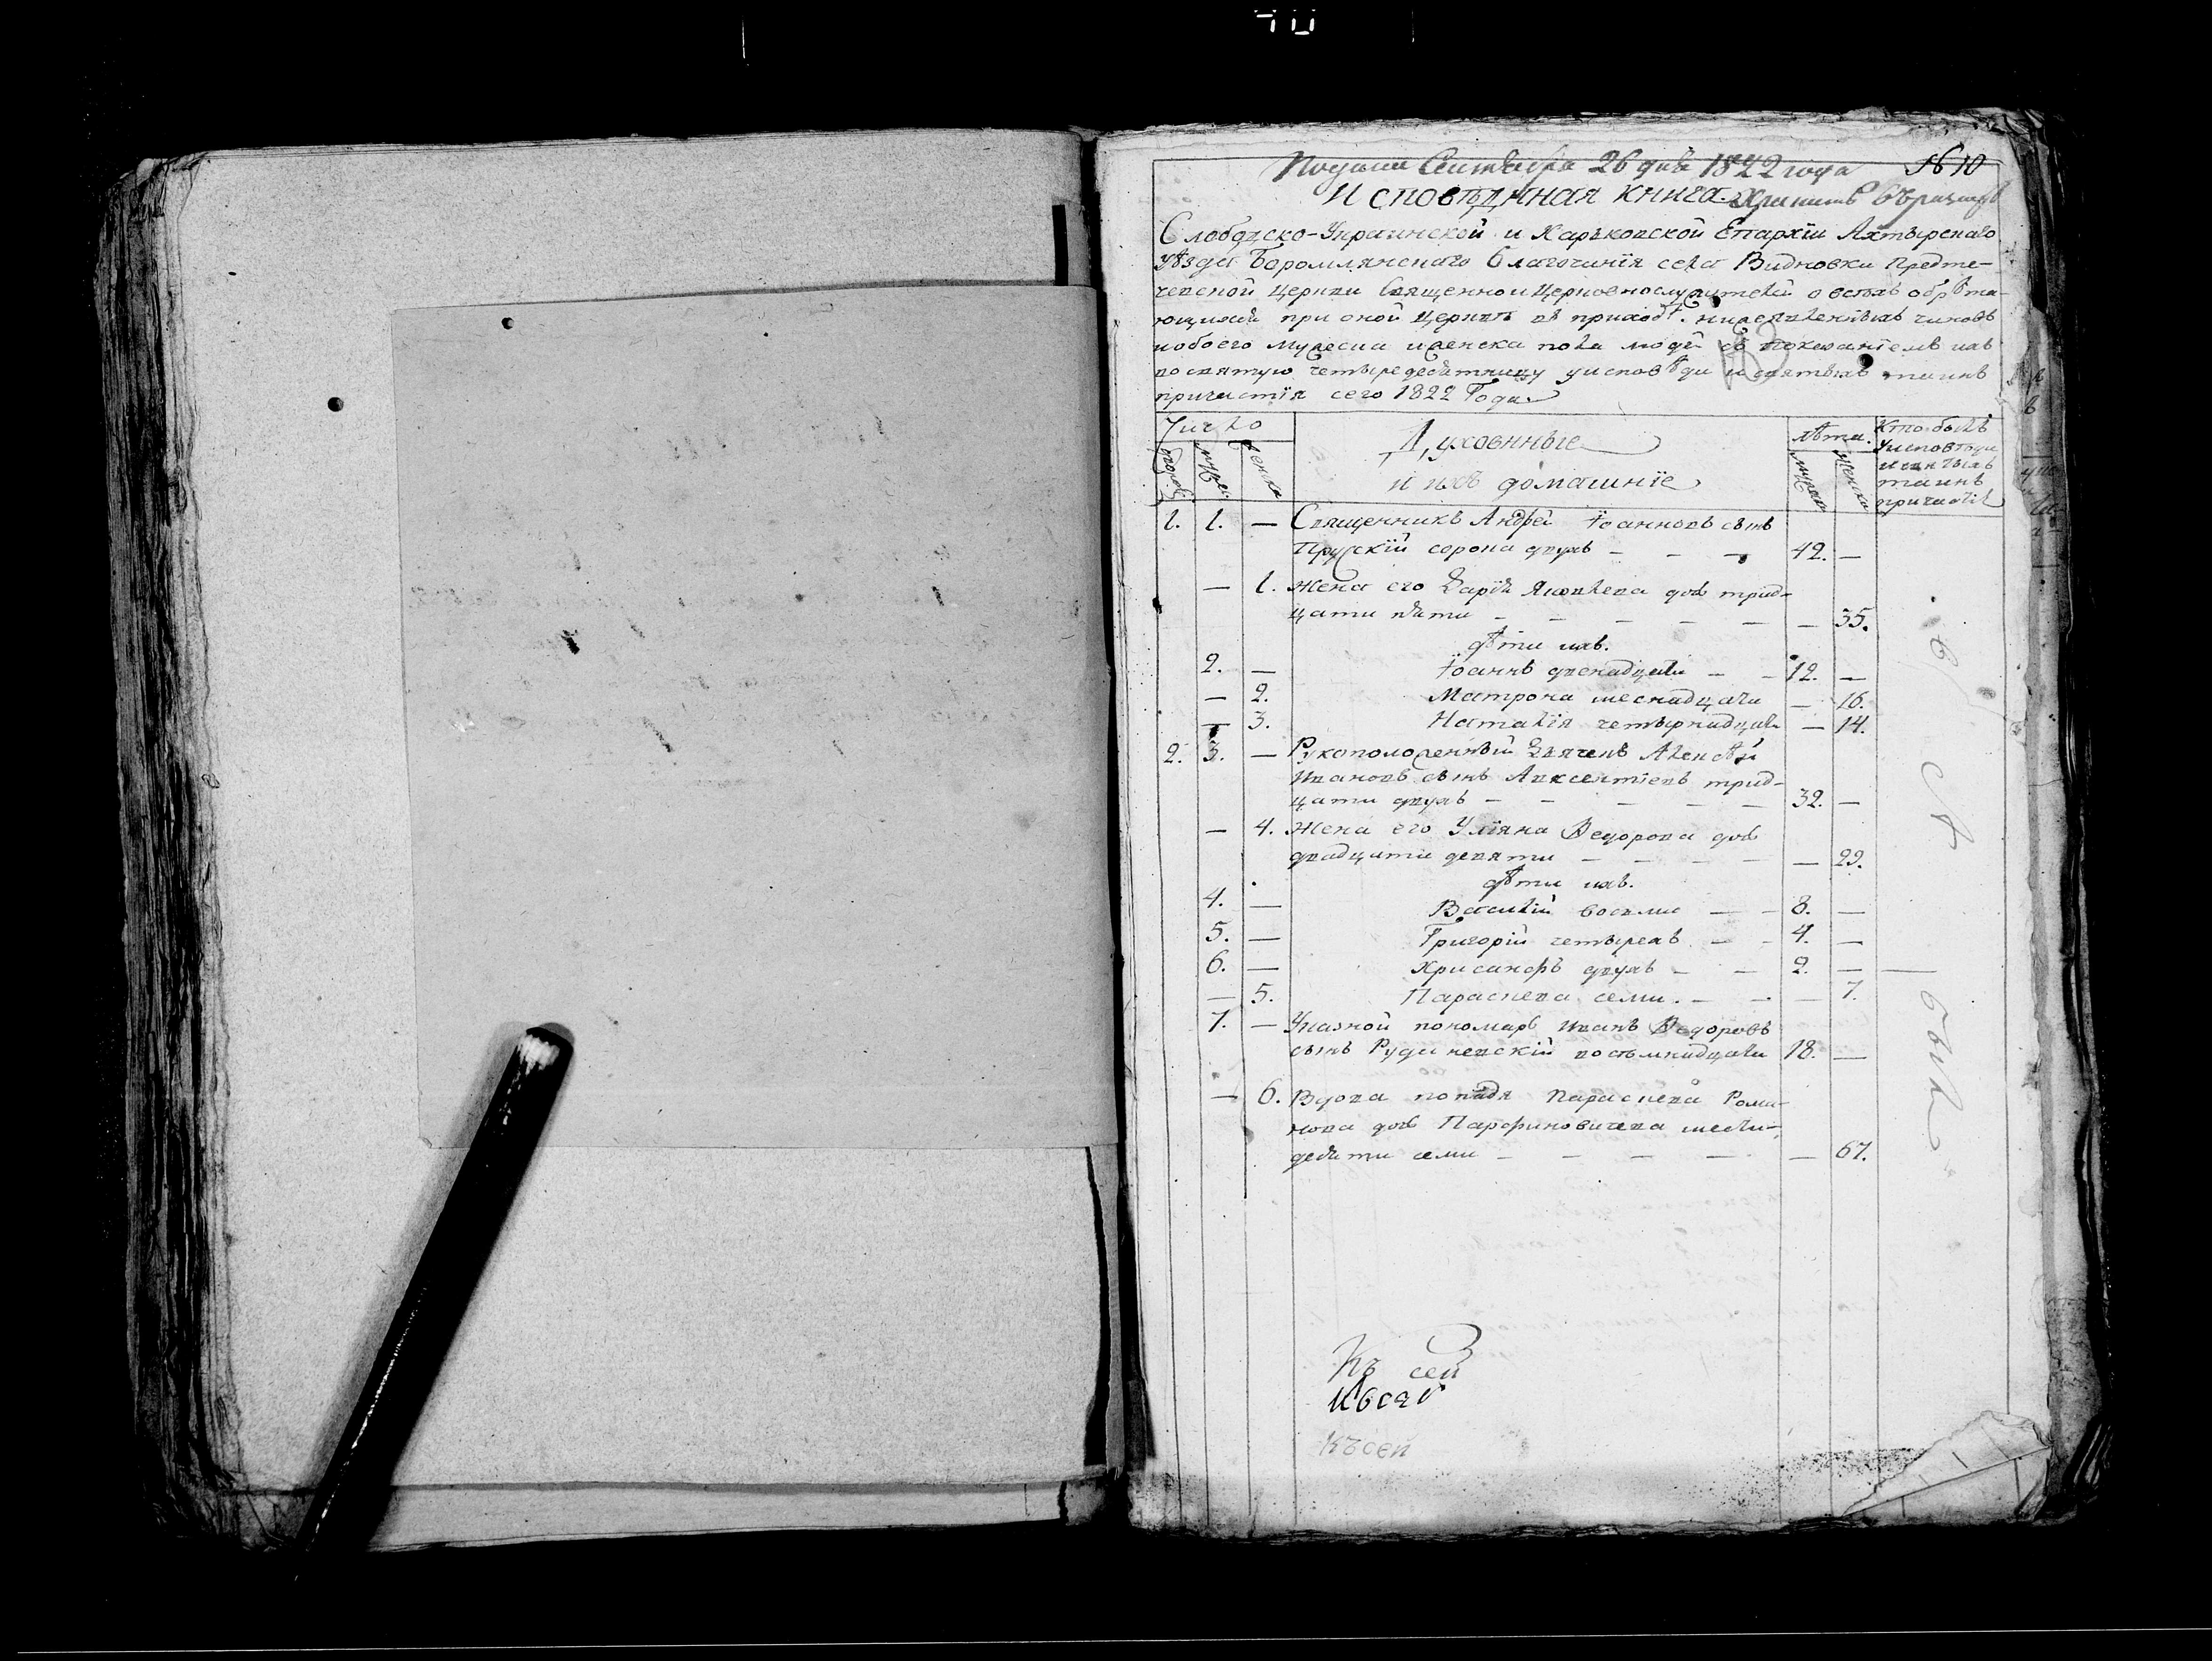 Подана Сентября 26 дня 1822 года № 10
Исповѣдная книга. Хранить въ ризницѣ
Слободско-Украинской и Харьковской Епархїи Ахтырскаго
уѣзда Боромлянскаго благочинїя села Видновки Предте-
ченской церкви священно и церковнослужителей о всѣхъ обрѣта-
ющихся при оной церкви въ приходѣ нижеявленныхъ чиновъ
и обоего мужеска и женска пола людей съ показанїемъ ихъ
во святую четыредесятницу у исповѣди и святыхъ таинъ
причастїя сего 1822 Года
Число Духовные лѣта. Кто былъ
дворовъ мужеск женска и ихъ домашнїе мужеск женска у исповѣди
и святыхъ
таинъ
причастія
1. 1. — Священникъ Андрей Їоанновъ сынъ
Прускїй сорока двухъ — — — 42. —
— 1. Жена его Дарїя Яковлева дочь трид-
цати пяти — — — — — — 35.
дѣти ихъ.
2. — Їоаннъ двенадцати — — 12. —
— 2. Матрона шеснадцати — 16.
— 3. Наталїя четырнадцати — 14.
2. 3. — Рукоположенный Дьячекъ Алексѣй
Ивановъ сынъ Авксентїевъ трид-
цати двухъ — — — — — 32. —
— 4. Жена его Улїяна Ѳедорова дочь
двадцати девяти — — — — — 29.
дѣти ихъ.
4. — Василїй восьми — — 8. —
5. — Григорїй четырехъ — — 4. —
6. — Хрисанфъ двухъ — — 2. — —
— 5. Параскева семи. — — — 7.
7. — Указной пономарь Иванъ Ѳедоровъ
сынъ Рудиневскїй восьмнадцати 18. —
— 6. Вдова попадя Параскева Рома-
нова дочь Парфиновичева шести-
десяти семи — — — — — 67.
были
Къ сей
Къ сей
Къ сей